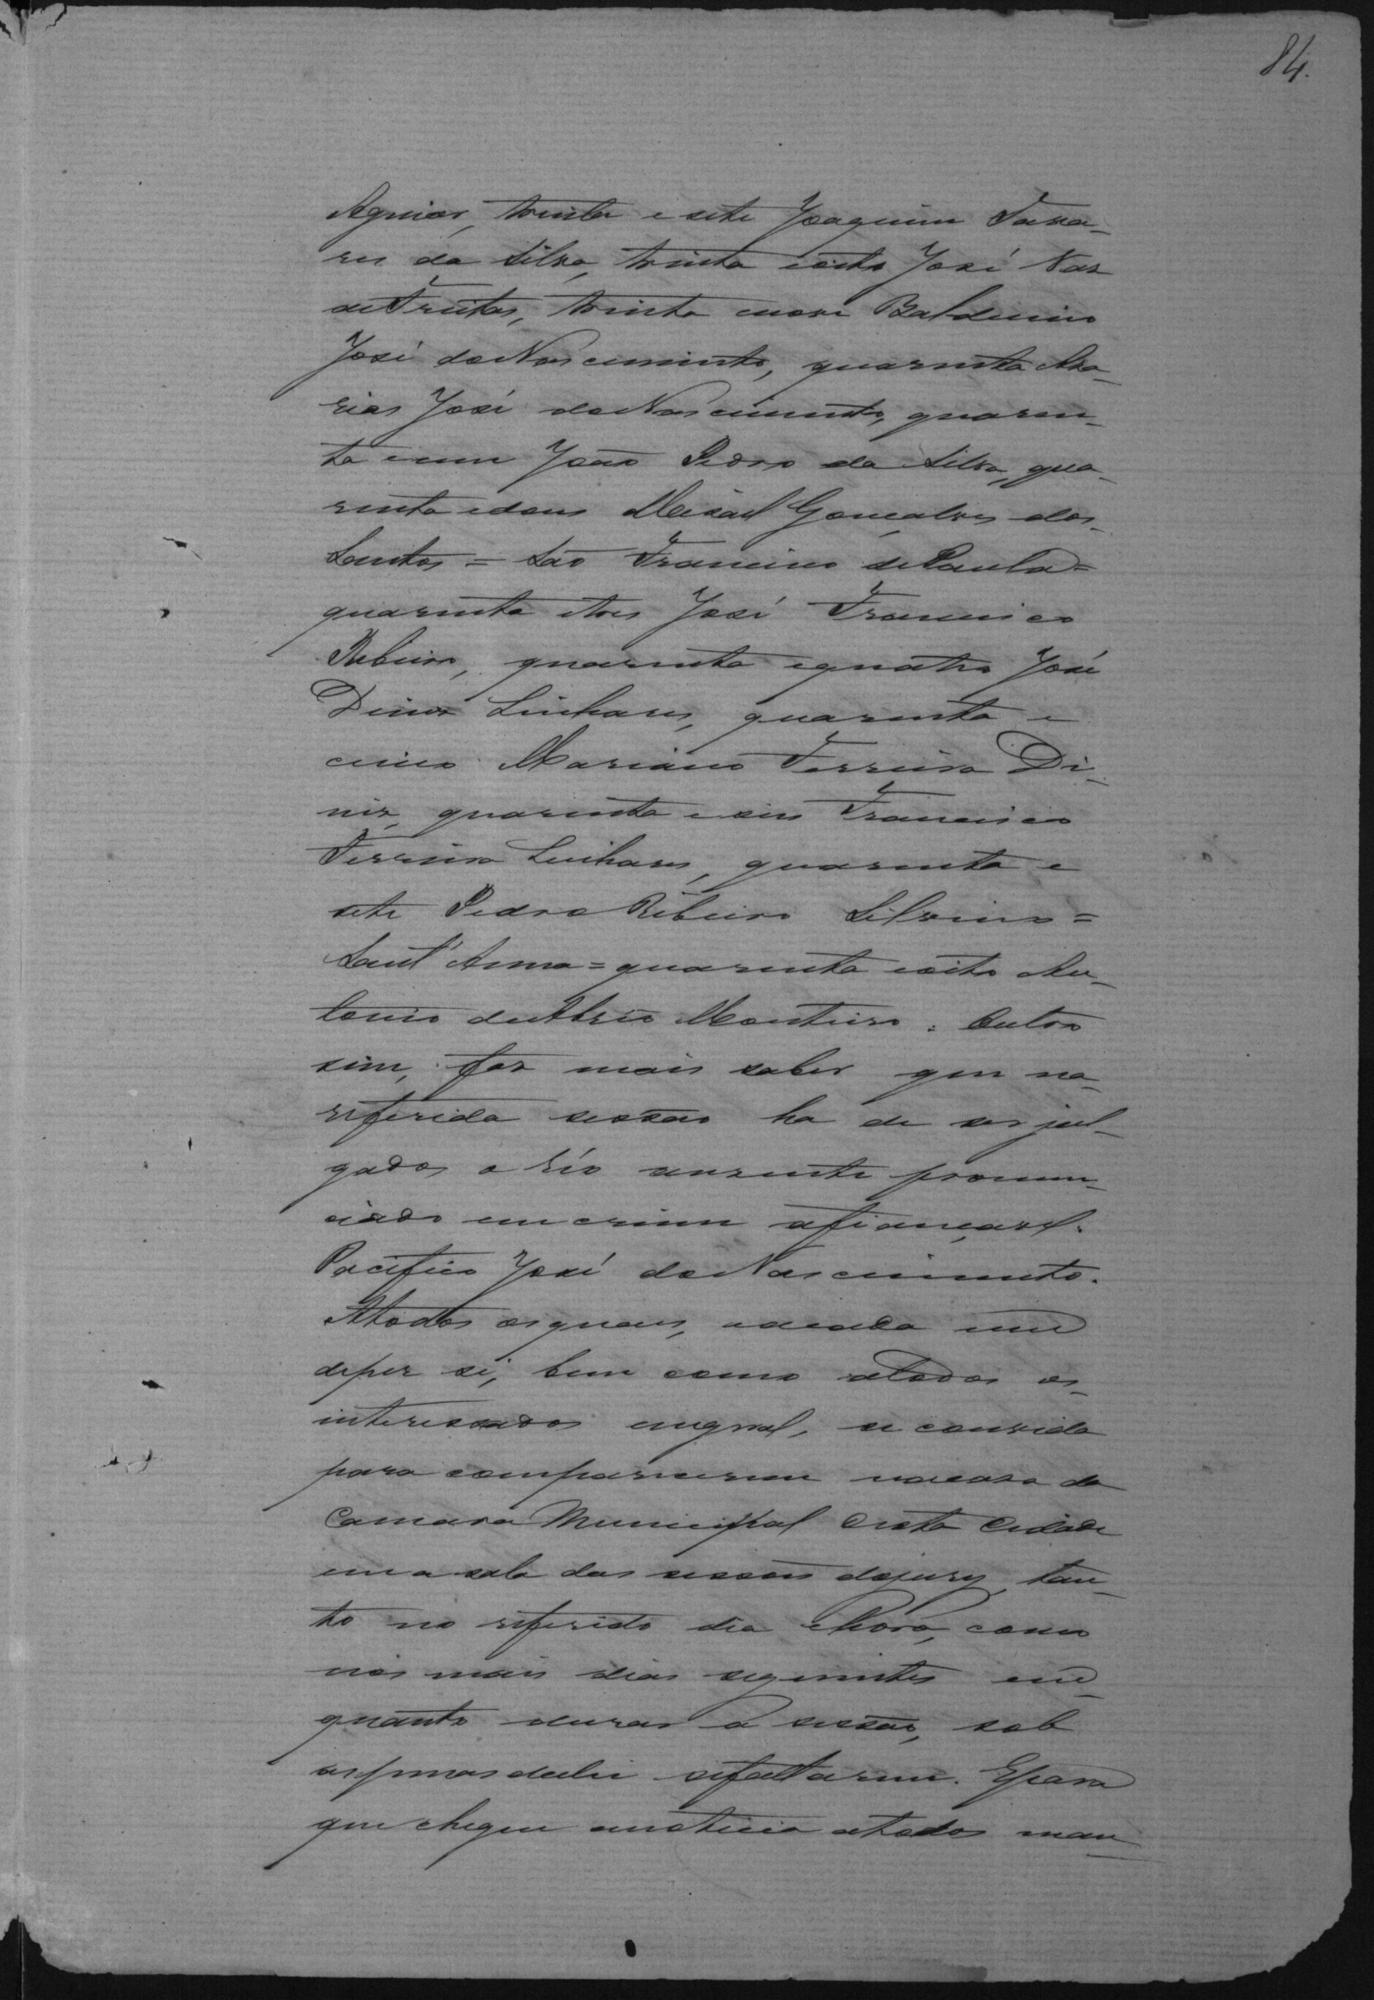 84.
Aguiar, trinta e sete Joaquim Tava-
res da Silva, trinta e oito José Vaz
de Freitas, trinta e nove Balduino
José do Nascimento, quarenta Aza-
rias José do Nascimento, quaren-
ta e um João Pedro da Silva, qua-
renta e dous Misael Gonçalves dos
Santos = São Francisco de Paula =
quarenta e tres José Francisco
Ribeiro, quarenta e quatro José
Diniz Linhares, quarenta e
cinco Mariano Ferreira Di-
niz, quarenta e seis Francisco
Ferreira Linhares, quarenta e
sete Pedro Ribeiro Silvino =
Sant'Anna = quarenta e oito An-
tonio de Monteiro. Outro
sim, faz mais saber que na
referida sessão ha de ser jul-
gados o réo ausente pronun-
ciado em crime afiançavel.
Pacifico José do Nascimento.
A todos os quaes, e a cada um
de per si, bem como a todos os
interessados em geral, se convida
para comparecerem na casa da
Camara Municipal desta Cidade
em a sala das sessões do jury, tan-
to no referido dia e hora, como
nos mais dias seguintes em
quanto durar a sessão, sob
as penas da lei se faltarem. E para
que chegue a noticia a todos man